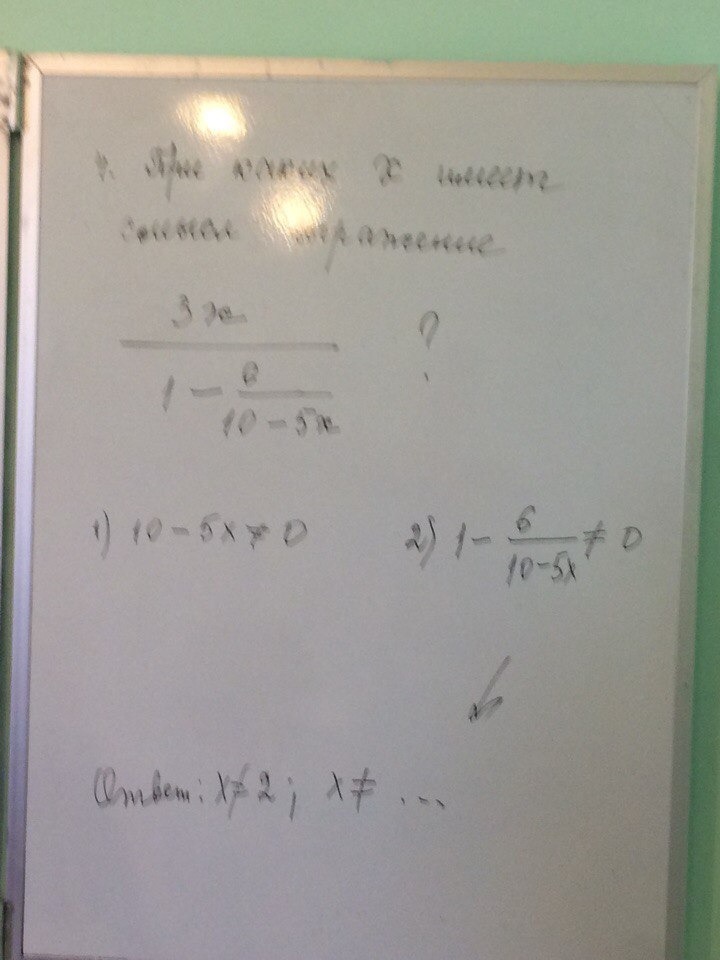 4. При каких x имеет
смысл выражение
3x
1 - 6
10 - 5x
?
1) 10 - 5x ≠ 0
2) 1 - 6
10-5x
≠ 0
Ответ: x≠2; x≠ ...